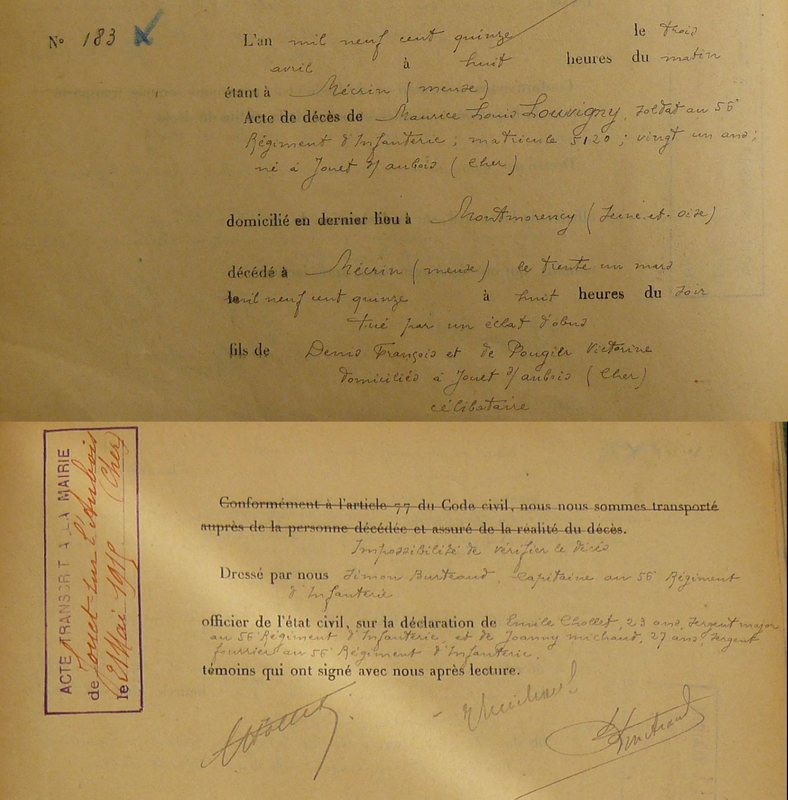 N° 183
L'an mil neuf cent quinze le trois
avril à huit heures du matin
étant à Mécrin (meuse)
Acte de décès de Maurice Louis Louvigny, soldat au 56e
Régiment d'Infanterie ; matricule 5120 ; vingt un ans ;
né à Jouet s/ aubois (Cher)
domicilié en dernier lieu à Montmorency (Seine-et-Oise)
décédé à Mécrin (meuse) le trente un mars
mil neuf cent quinze à huit heures du soir
tué par un éclat d'obus
fils de Denis François et de Victorine
domiciliés à Jouet s/ aubois (Cher)
célibataire
ACTE TRANSCRIT A LA MAIRIE
de Jouet-sur-l'Aubois
le 21 Mai 1915 (Cher)
Conformément à l'article 77 du Code civil, nous nous sommes transporté
auprès de la personne décédée et assuré de la réalité du décès.
Impossibilité de vérifier le décès
Dressé par nous Simon Burteaud, Capitaine au 56e Régiment
d'Infanterie
officier de l'état civil, sur la déclaration de Emile Chollet, 23 ans, sergent major
au 56e Régiment d'Infanterie, et de Joanny Michaud, 27 ans, sergent
fourrier au 56e Régiment d'Infanterie.
témoins qui ont signé avec nous après lecture.